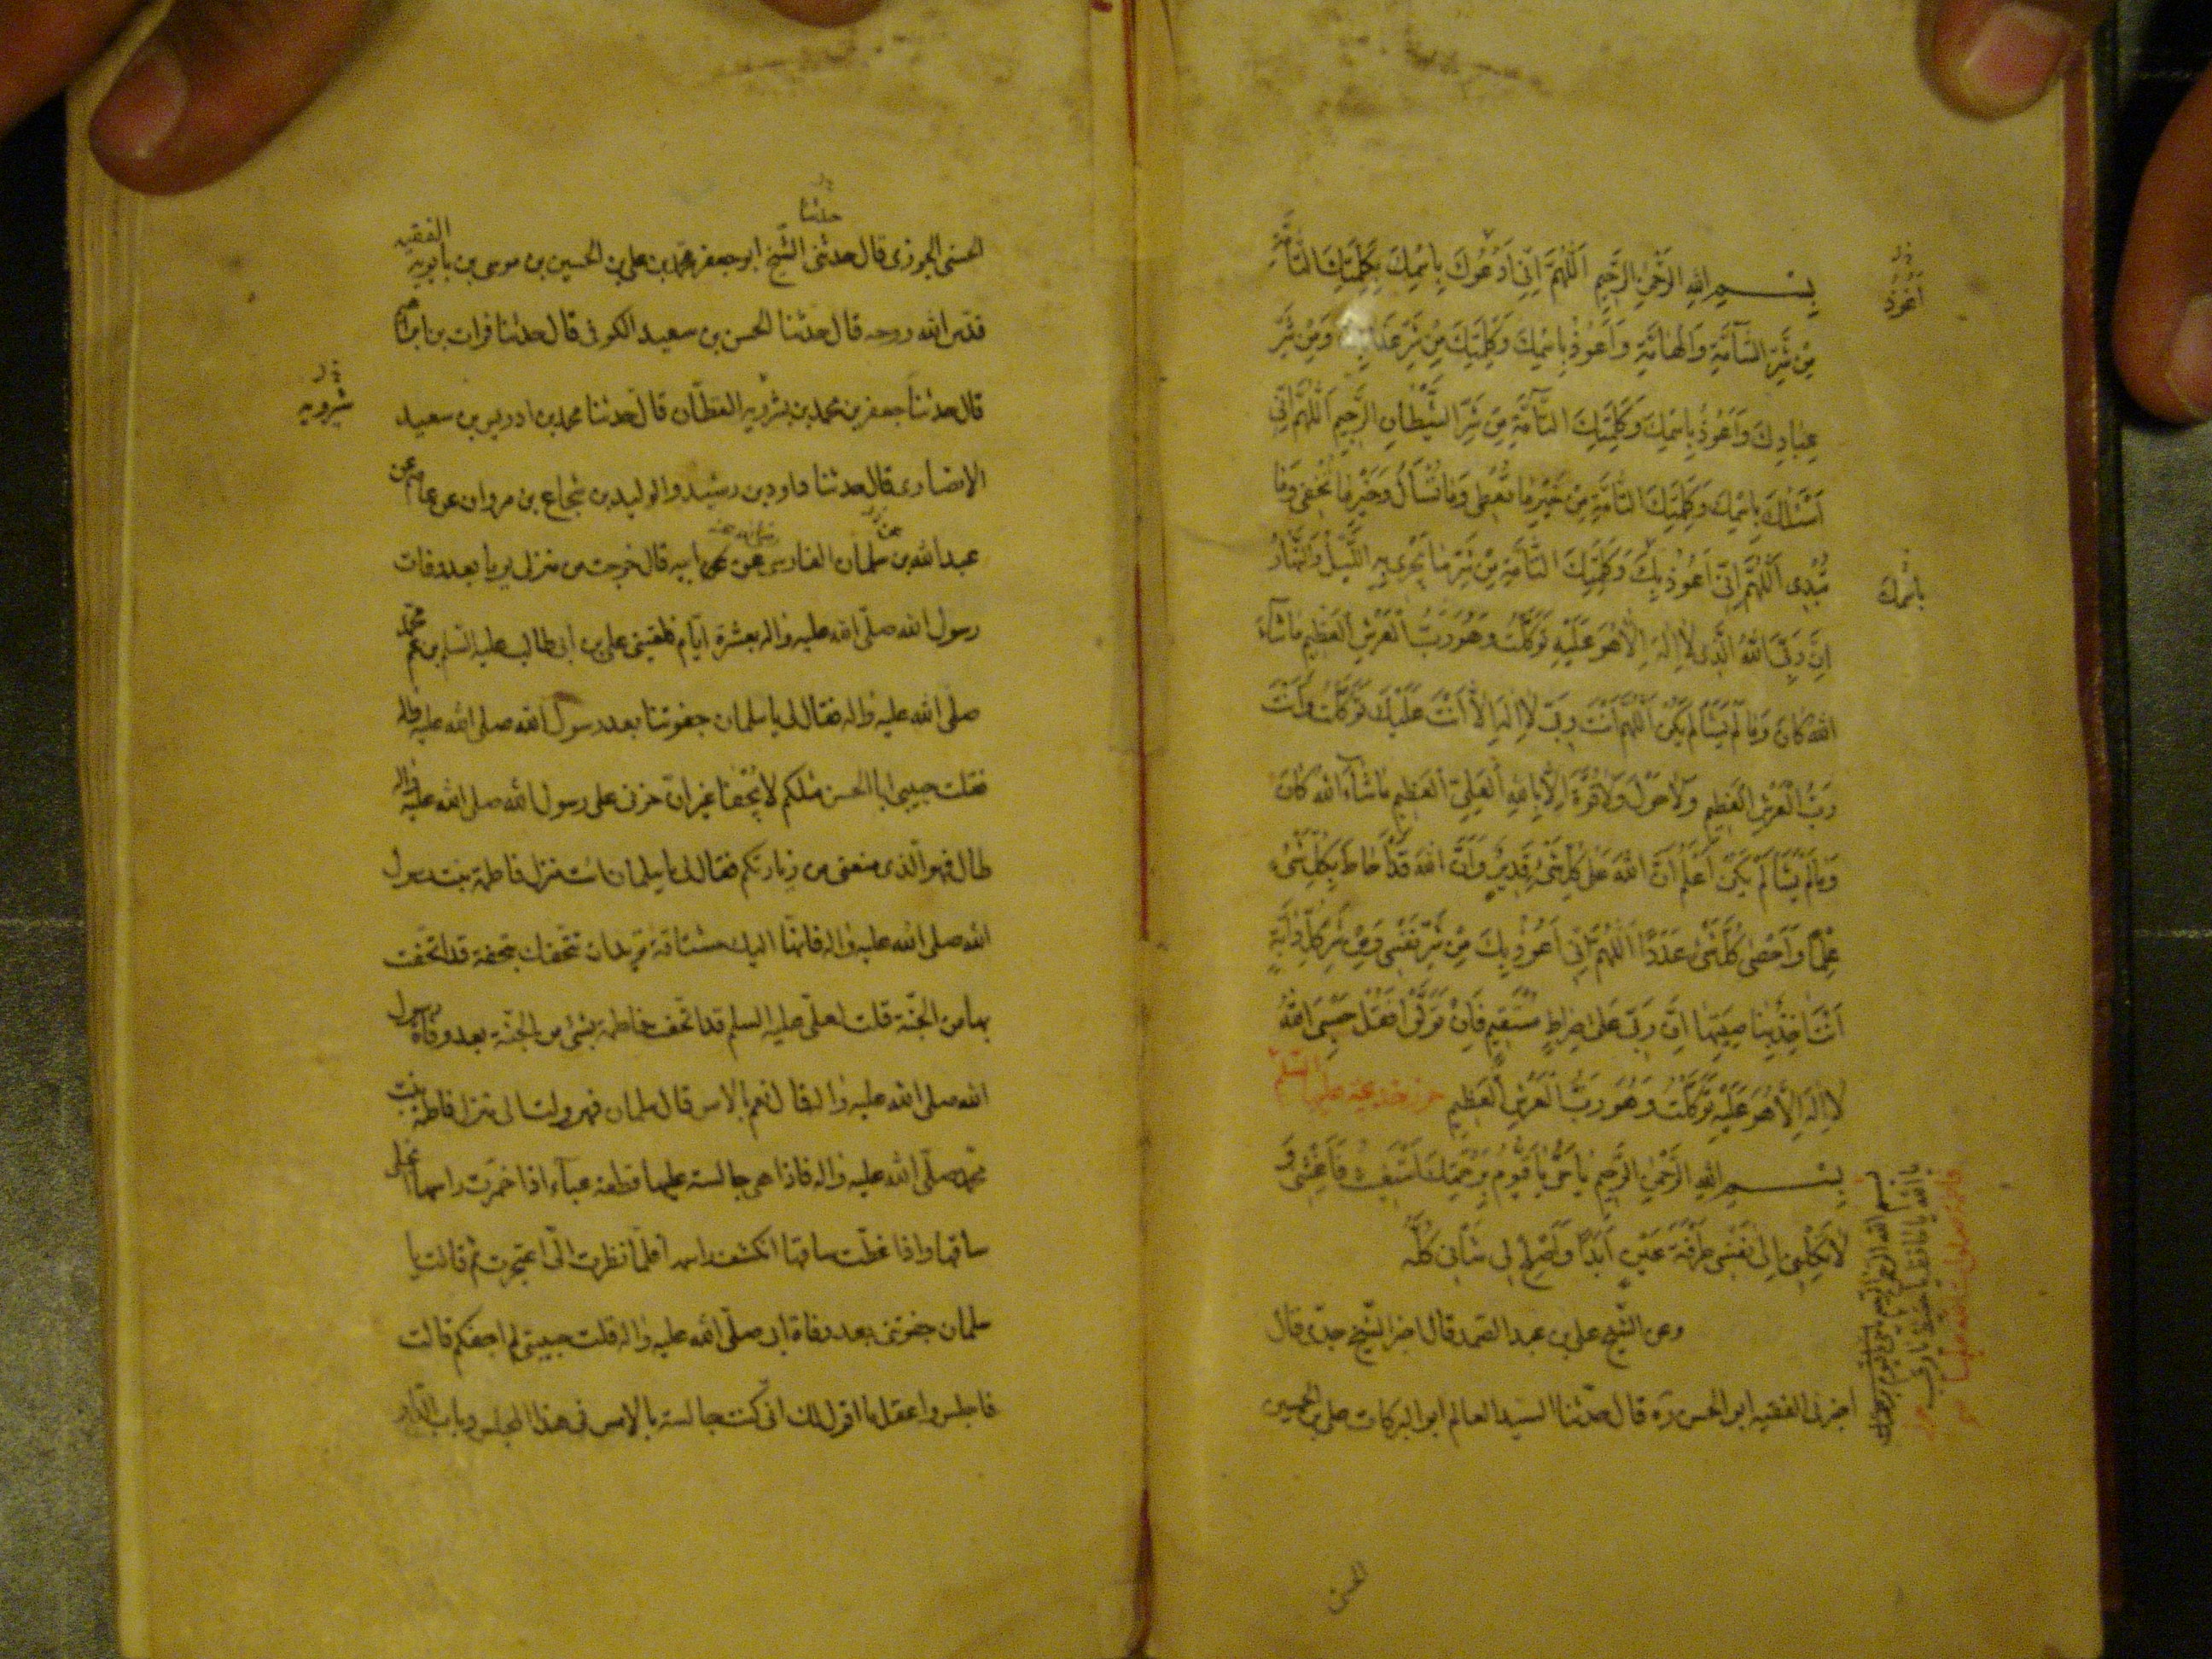 بسم الله الرحمن الرحیم اَللّٰهُمَّ اِنّی اَدْعُوكَ بِاسْمِكَ بِكَلِمَتِكَ التّامَّةِ
اَعُوذُ
مِنْ شَرِّ السّآمَّةِ وَالْهامَّةِ وَاَعُوذُ بِاسْمِكَ وَكَلِمَتِكَ مِنْ شَرِّ عَذابِكَ وَمِنْ شَرِّ
عِبادِكَ وَاَعُوذُ بِاسْمِكَ وَكَلِمَتِكَ التّآمَّةِ مِنْ شَرِّ الشَّیْطانِ الرَّجیمِ اَللّٰهُمَّ اِنّی
اَسْئَلُكَ بِاسْمِكَ وَكَلِمَتِكَ التّآمَّةِ مِنْ خَیْرِ ما تُعْطی وَما تُسْأَلُ وَخَیْرِ ما تُخْفی وَما
تُبْدی اَللّٰهُمَّ اِنّی اَعُوذُ بِكَ وَكَلِمَتِكَ التّآمَّةِ مِنْ شَرِّ ما یَجْری بِهِ اللَّیْلُ وَالنَّهارُ
باسْمِكَ
اِنَّ رَبِّیَ اللّٰهُ الَّذی لا اِلٰهَ اِلّا هُوَ عَلَیْهِ تَوَكَّلْتُ وَهُوَ رَبُّ الْعَرْشِ الْعَظیمِ ماشآءَ
اللّٰهُ كانَ وَما لَمْ یَشَأْ لَمْ یَكُنْ اَللّٰهُمَّ اَنْتَ رَبّی لا اِلٰهَ اِلّا اَنْتَ عَلَیْكَ تَوَكَّلْتُ وَاَنْتَ
رَبُّ الْعَرْشِ الْعَظیمِ وَلا حَوْلَ وَلا قُوَّةَ اِلّا بِاللّٰهِ الْعَلِیِّ الْعَظیمِ ماشآءَ اللّٰهُ كانَ
وَما لَمْ یَشَأْ لَمْ یَكُنْ اَعْلَمُ اَنَّ اللّٰهَ عَلٰی كُلِّ شَیْءٍ قَدیرٌ وَاَنَّ اللّٰهَ قَدْ اَحاطَ بِكُلِّ شَیْءٍ
عِلْمًا وَاَحْصٰی كُلَّ شَیْءٍ عَدَدًا اَللّٰهُمَّ اِنّی اَعُوذُ بِكَ مِنْ شَرِّ نَفْسی وَمِنْ شَرِّ كُلِّ دآبَّةٍ
اَنْتَ اخِذٌ بِناصِیَتِها اِنَّ رَبّی عَلٰی صِراطٍ مُسْتَقیمٍ فَاِنْ تَوَلَّوْا فَقُلْ حَسْبِیَ اللّٰهُ
لا اِلٰهَ اِلّا هُوَ عَلَیْهِ تَوَكَّلْتُ وَهُوَ رَبُّ الْعَرْشِ الْعَظیمِ حرز خدیجة علیها السلم
بسم اللّٰهِ الرَّحْمٰنِ الرَّحیمِ یا حَیُّ یا قَیُّومُ بِرَحْمَتِكَ اَسْتَغیثُ فَاَغِثْنی وَ
لا تَكِلْنی اِلٰی نَفْسی طَرْفَةَ عَیْنٍ اَبَدًا وَاَصْلِحْ لی شَأْنی كُلَّهُ
وعن الشّیخ علی بن عبد الصّمد قال اخبرنا الشّیخ جدّی قال
اخبرنا الفقیه ابو الحسن ره قال حدّثنا السّید العالم ابو البركات علی بن الحسین
الحسنی
الحسنی الجوزی قال حدثنی الشّیخ ابو جعفر محمّد بن علی بن الحسین بن موسی بن بابویه الفقیه
حدثنا
قدّس الله روحه قال حدثنا الحسن بن سعید الكوفی قال حدثنا فرات بن ابراهیم
قال حدثنا جعفر بن محمد بن بشرویه القطّان قال حدثنا محمد بن ادریس بن سعید
شرویه
الانصاری قال حدثنا داود بن رشید والولید بن شجاع بن مروان عن عاصم عن
عبد الله بن سلمان الفارسی عن ابیه قال خرجت من منزلی یوما بعد وفات
رسول الله صلّی الله علیه واله بعشرة ایّام فلقینی علی بن ابی طالب علیه السّلم ابن عم محمّد
صلّی الله علیه واله فقال لی یا سلمان جفوتنا بعد رسول الله صلی الله علیه واله
فقلت حبیبی ابا الحسن مثلكم لا یُجفٰا غیر انّ حزنی علی رسول الله صلی الله علیه واله
طال فهو الّذی منعنی من زیارتكم فقال لی یا سلمان ائت منزل فاطمة بنت رسول
الله صلی الله علیه واله فانّها الیك مشتاقة ترید ان تتحفك بتحفة قد اتحفت
بها من الجنّة قلت لعلی علیه السلم قد اتحفت فاطمة بشیء من الجنّة بعد وفاة رسول
الله صلی الله علیه واله قال نعم بالامس قال سلمان فهرولت الی منزل فاطمة بنت
محمد صلّی الله علیه واله فاذا هی جالسة علیها قطعة عبآء اذا خمرت راسها انجلی
ساقها واذا غطّت ساقها انكشف راسها فلمّا نظرت الیّ اعتجرت ثم قالت یا
سلمان جفوتنی بعد وفاة ابی صلّی الله علیه واله قلت حبیبتی لم اجفكم قالت
فاجلس واعقل ما اقول لك انّی كنت جالسة بالامس فی هذا المجلس وباب الدّار